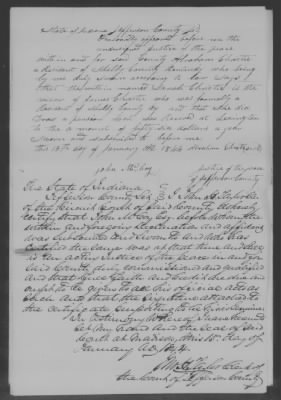 State of Indiana Jefferson County Sct
Personally appeared before me the
undersigned Justice of the peace
within and for said County Abraham Chartie
a Resident of Shelby County Kentucky who being
by me duly sworn according to law says
that the within named Sarah Chartie is the
widow of James Chartie who was formerly a
Resident of Shelby County Ky and that she did
Draw a pension
to the amount of fifty six dollars a year
Sworn and subscribed to before me
this 15th day of January AD 1844 Abraham Chartie
John McCoy Justice of the peace
of Jefferson County
The State of Indiana
Jefferson County Sct I John H Taylor
of the Circuit Court of said County do hereby
certify that John McCoy Esq before whom the
within and foregoing Declaration and affidavit
was subscribed and sworn to and who has
certified the same was at that time and since
is an acting Justice of the peace in and for
said County duly commissioned and qualified
and that due faith and credit is and
ought to be given to all his official acts as
such and that the signature attached to
the certificate purporting to be his is genuine
In testimony Whereof I have hereunto
set my hand and the seal of said
court at Madison this 15 day of
January AD 1844
JH Taylor Clerk of
the Court of Jefferson County